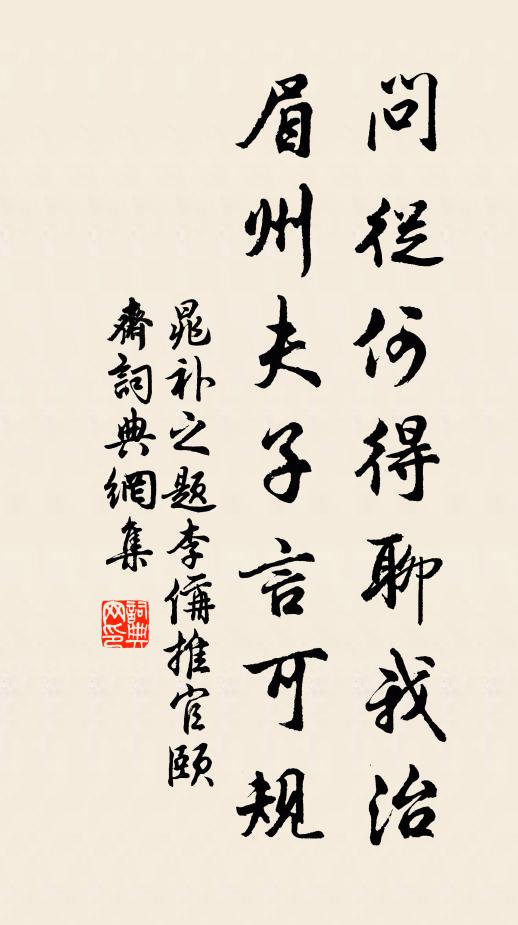 問從何得聊我治
眉州夫子言可規
晁補之題李偁推官頤
齋詞典網集
詞典
网印